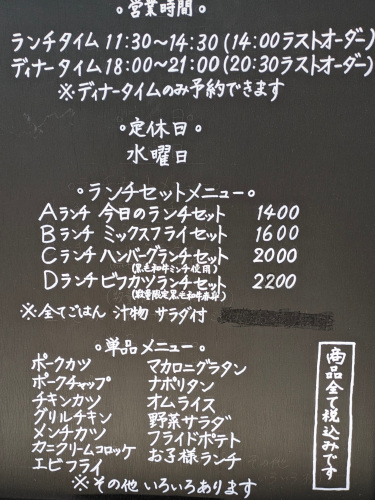 。営業時間。
ランチタイム 11:30〜14:30(14:00ラストオーダー)
ディナータイム18:00〜21:00(20:30ラストオーダー)
※ディナータイムのみ予約できます
。定休日。
水曜日
。ランチセットメニュー。
Aランチ 今日のランチセット 1400
Bランチ ミックスフライセット 1600
Cランチ ハンバーグランチセット 2000
(黒毛和牛ミンチ使用)
Dランチ ビフカツランチセット 2200
(数量限定黒毛和牛赤身)
※全てごはん 汁物 サラダ付
。単品メニュー。
ポークカツ
ポークチャップ
チキンカツ
グリルチキン
メンチカツ
カニクリームコロッケ
エビフライ
マカロニグラタン
ナポリタン
オムライス
野菜サラダ
フライドポテト
お子様ランチ
※その他いろいろあります
商品全て税込みです